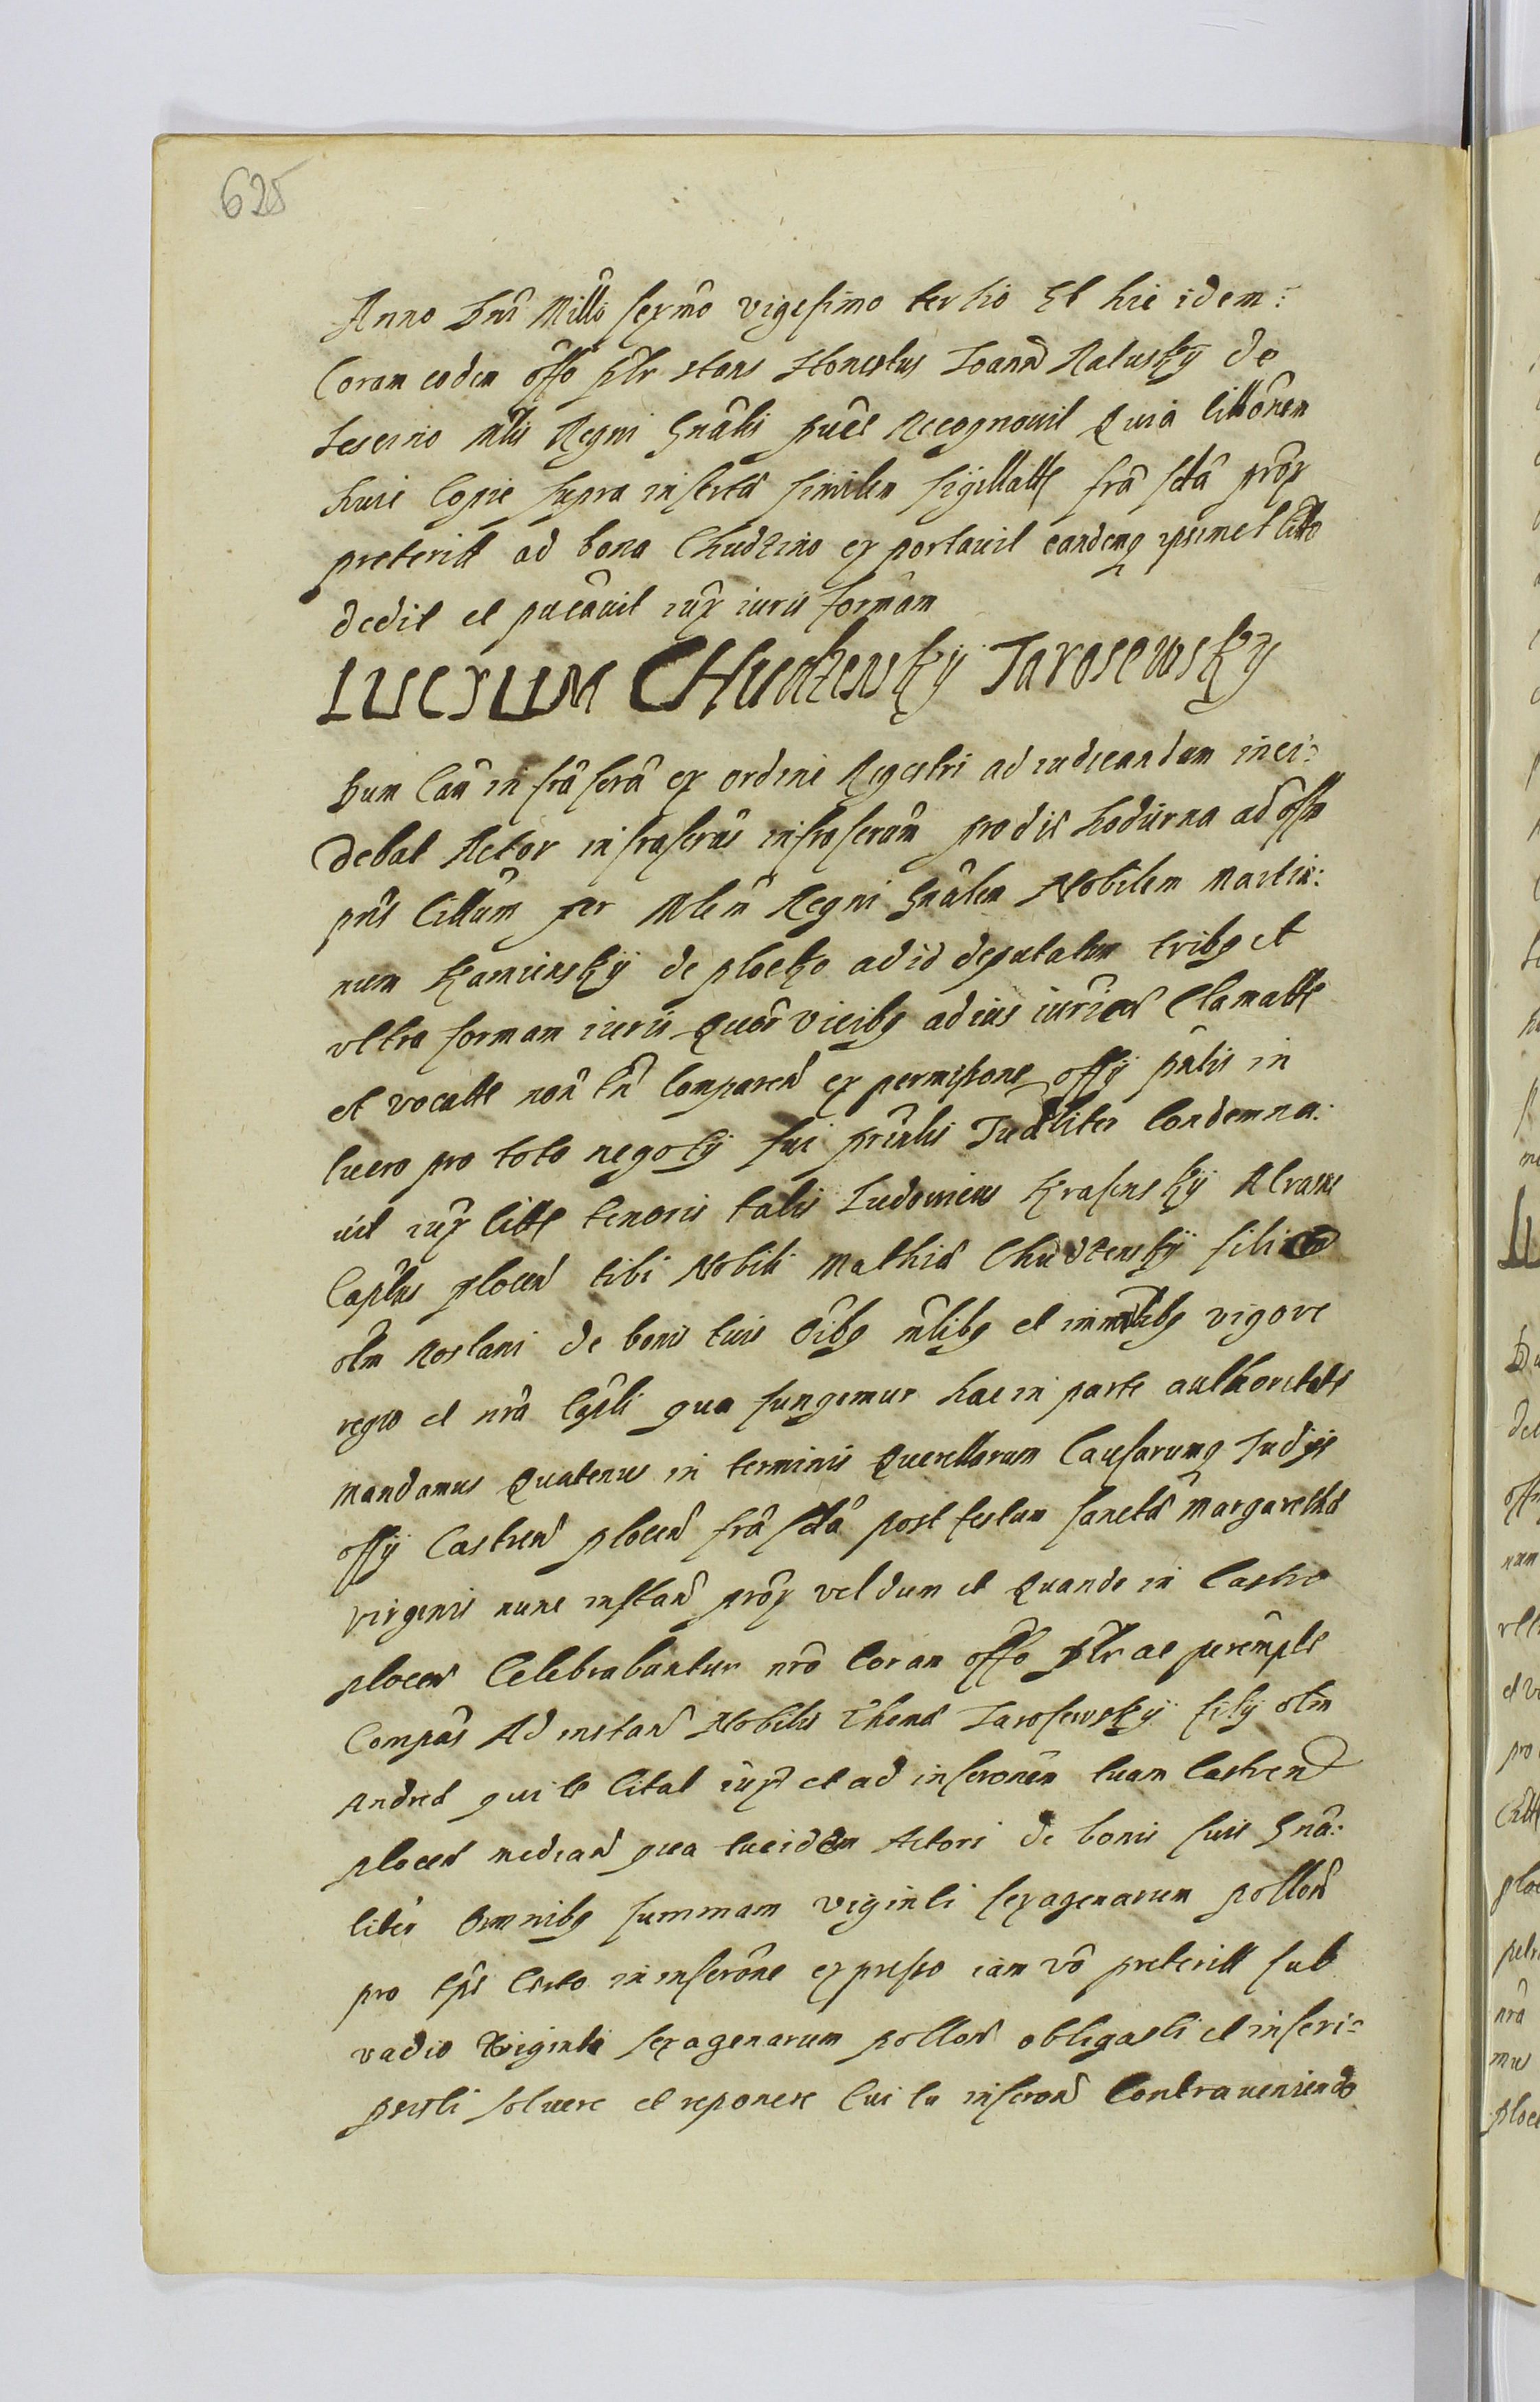 625
Anno Dni Millo sexmo vigesimo tertio Et hic idem:
Coram eodem offo pltr stans Honestus Joann Ratusky de
Ministlis Regni Gnalis publ Recognovit Quia cittonem
huic Copie supra inserta similem sigillatt fra scda prox
preterit ad bona Chudzino exportavit eandemq ipsimet citto
dedit et pucavit iux iuris formam
LUCRUM CHudzensky Jarosewsky
Dum Cau infrascra ex ordine Regestri ad iudicandum inci:
debat Actor infrascrus infrascram pro die hodierna ad offm
pns Cittum per Mlem Regni Gnalem Nobilem Martin:
num Kaminsky de plocko ad id deputatum tribq et
vltra formam iuris Quor vicibq ad ius iurica Clamatt
et vocatt non tn Comparen ex permissione offy pntis in
lucro pro toto negoty sui princlis Judliter Condemna:
vit iux litt tenoris talis Ludovicus Krasinsky
Captus plocen tibi Nobili Mathia Chudzensky filio
olm Roslani de bonis tuis Oibq mlibq et immlibq vigore
regio et nra Cpli qua fungemur hac in parte authoritate
mandamus Quatenus in terminis Querellarum Causarumq Judys
offy Castren plocen fra scda post festum Sancta Margaretha
virginis nunc instan prox vel dum et Quando in Castro
plocen Celebrabuntur nro Coram offo pltr ac perempte
Compas Ad instan Nobilis Thoma Jarosewsky fily olm
Andrea qui te Citat iuxt et ad inscronem tuam Castren
plocen median qua tu eidem Actori de bonis suis Gna:
liter Omnibq summam viginti sexagenarum pollon
pro tpe Certo in inscrone expresso iam vo preterit sub
vadio viginti sexagenarum pollon obligasti et inscri:
psisti soluere et reponere Cui tu inscron Contraveniendo